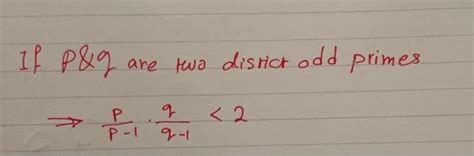 If P&q are two district odd primes
⇒ P/P-1 · q/q-1 < 2